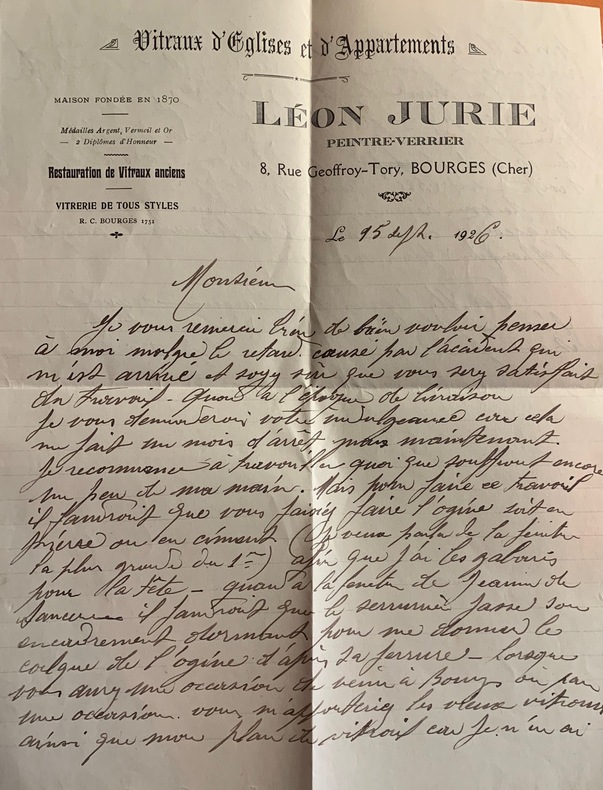 Vitraux d'Eglises et d'Appartements
MAISON FONDÉE EN 1870
Médailles Argent, Vermeil et Or
— 2 Diplômes d'Honneur —
Restauration de Vitraux anciens
VITRERIE DE TOUS STYLES
R. C. BOURGES 1751
LÉON JURIE
PEINTRE-VERRIER
8, Rue Geoffroy-Tory, BOURGES (Cher)
Le 15 sept. 1926.
Monsieur
Je vous remerci de bien vouloir penser
à moi malgré le retard causé par l'accident qui
m'est arrivé et soyez sûr que vous serez satisfait
du travail - Quand à l'époque de livraison
Je vous demanderais votre indulgeance car cela
me fait un mois d'arrêt mais maintenant
Je recommence à travailler quoi que souffrant encore
un peu de ma main. Mais pour faire ce travail
il faudrait que vous faisiez faire l'ogive soit en
pierre ou en ciment (Je veux parler de la fenêtre
la plus grande du 1er) afin que j'ai les gabaris
pour la tête - quand à la fenêtre de Jeanne de
il faudrait que le serrurier fasse son
encadrement dormant pour me donner le
de l'ogive d'après sa ferrure - Lorsque
vous aurez une occasion de venir à Bourges ou par
une occasion vous m'apporteriez les vieux vitraux
ainsi que mon plan de vitrail car Je n'en ai